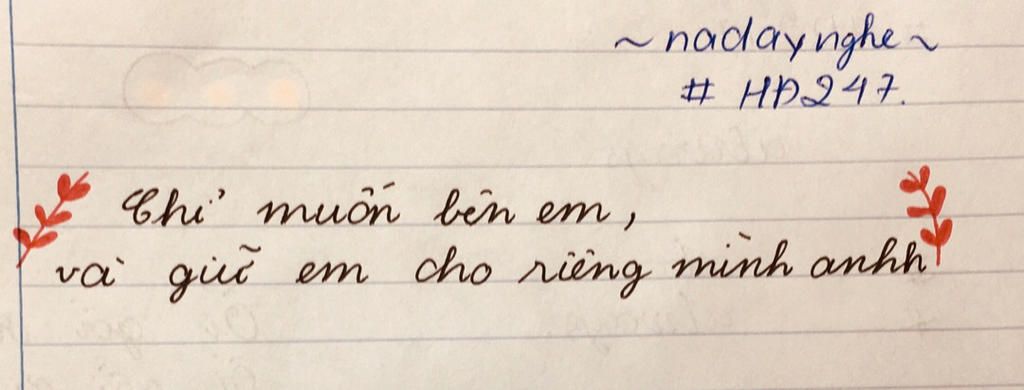 ~ nadaynghe ~
# HĐ247.
Chỉ muốn bên em,
và giữ em cho riêng mình anhh